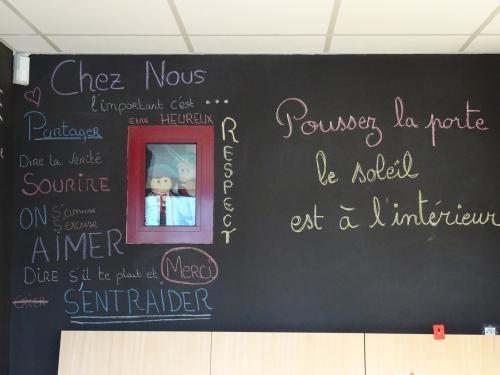 Chez Nous
l'important c'est ...
Etre HEUREUX
Partager
RESPECT
Dire la vérité
SOURIRE
ON s'amuse
s'excuse
AIMER
DIRE s'il te plait et MERCI
CRIER
S'ENTRAIDER
Poussez la porte
le soleil
est à l'intérieur